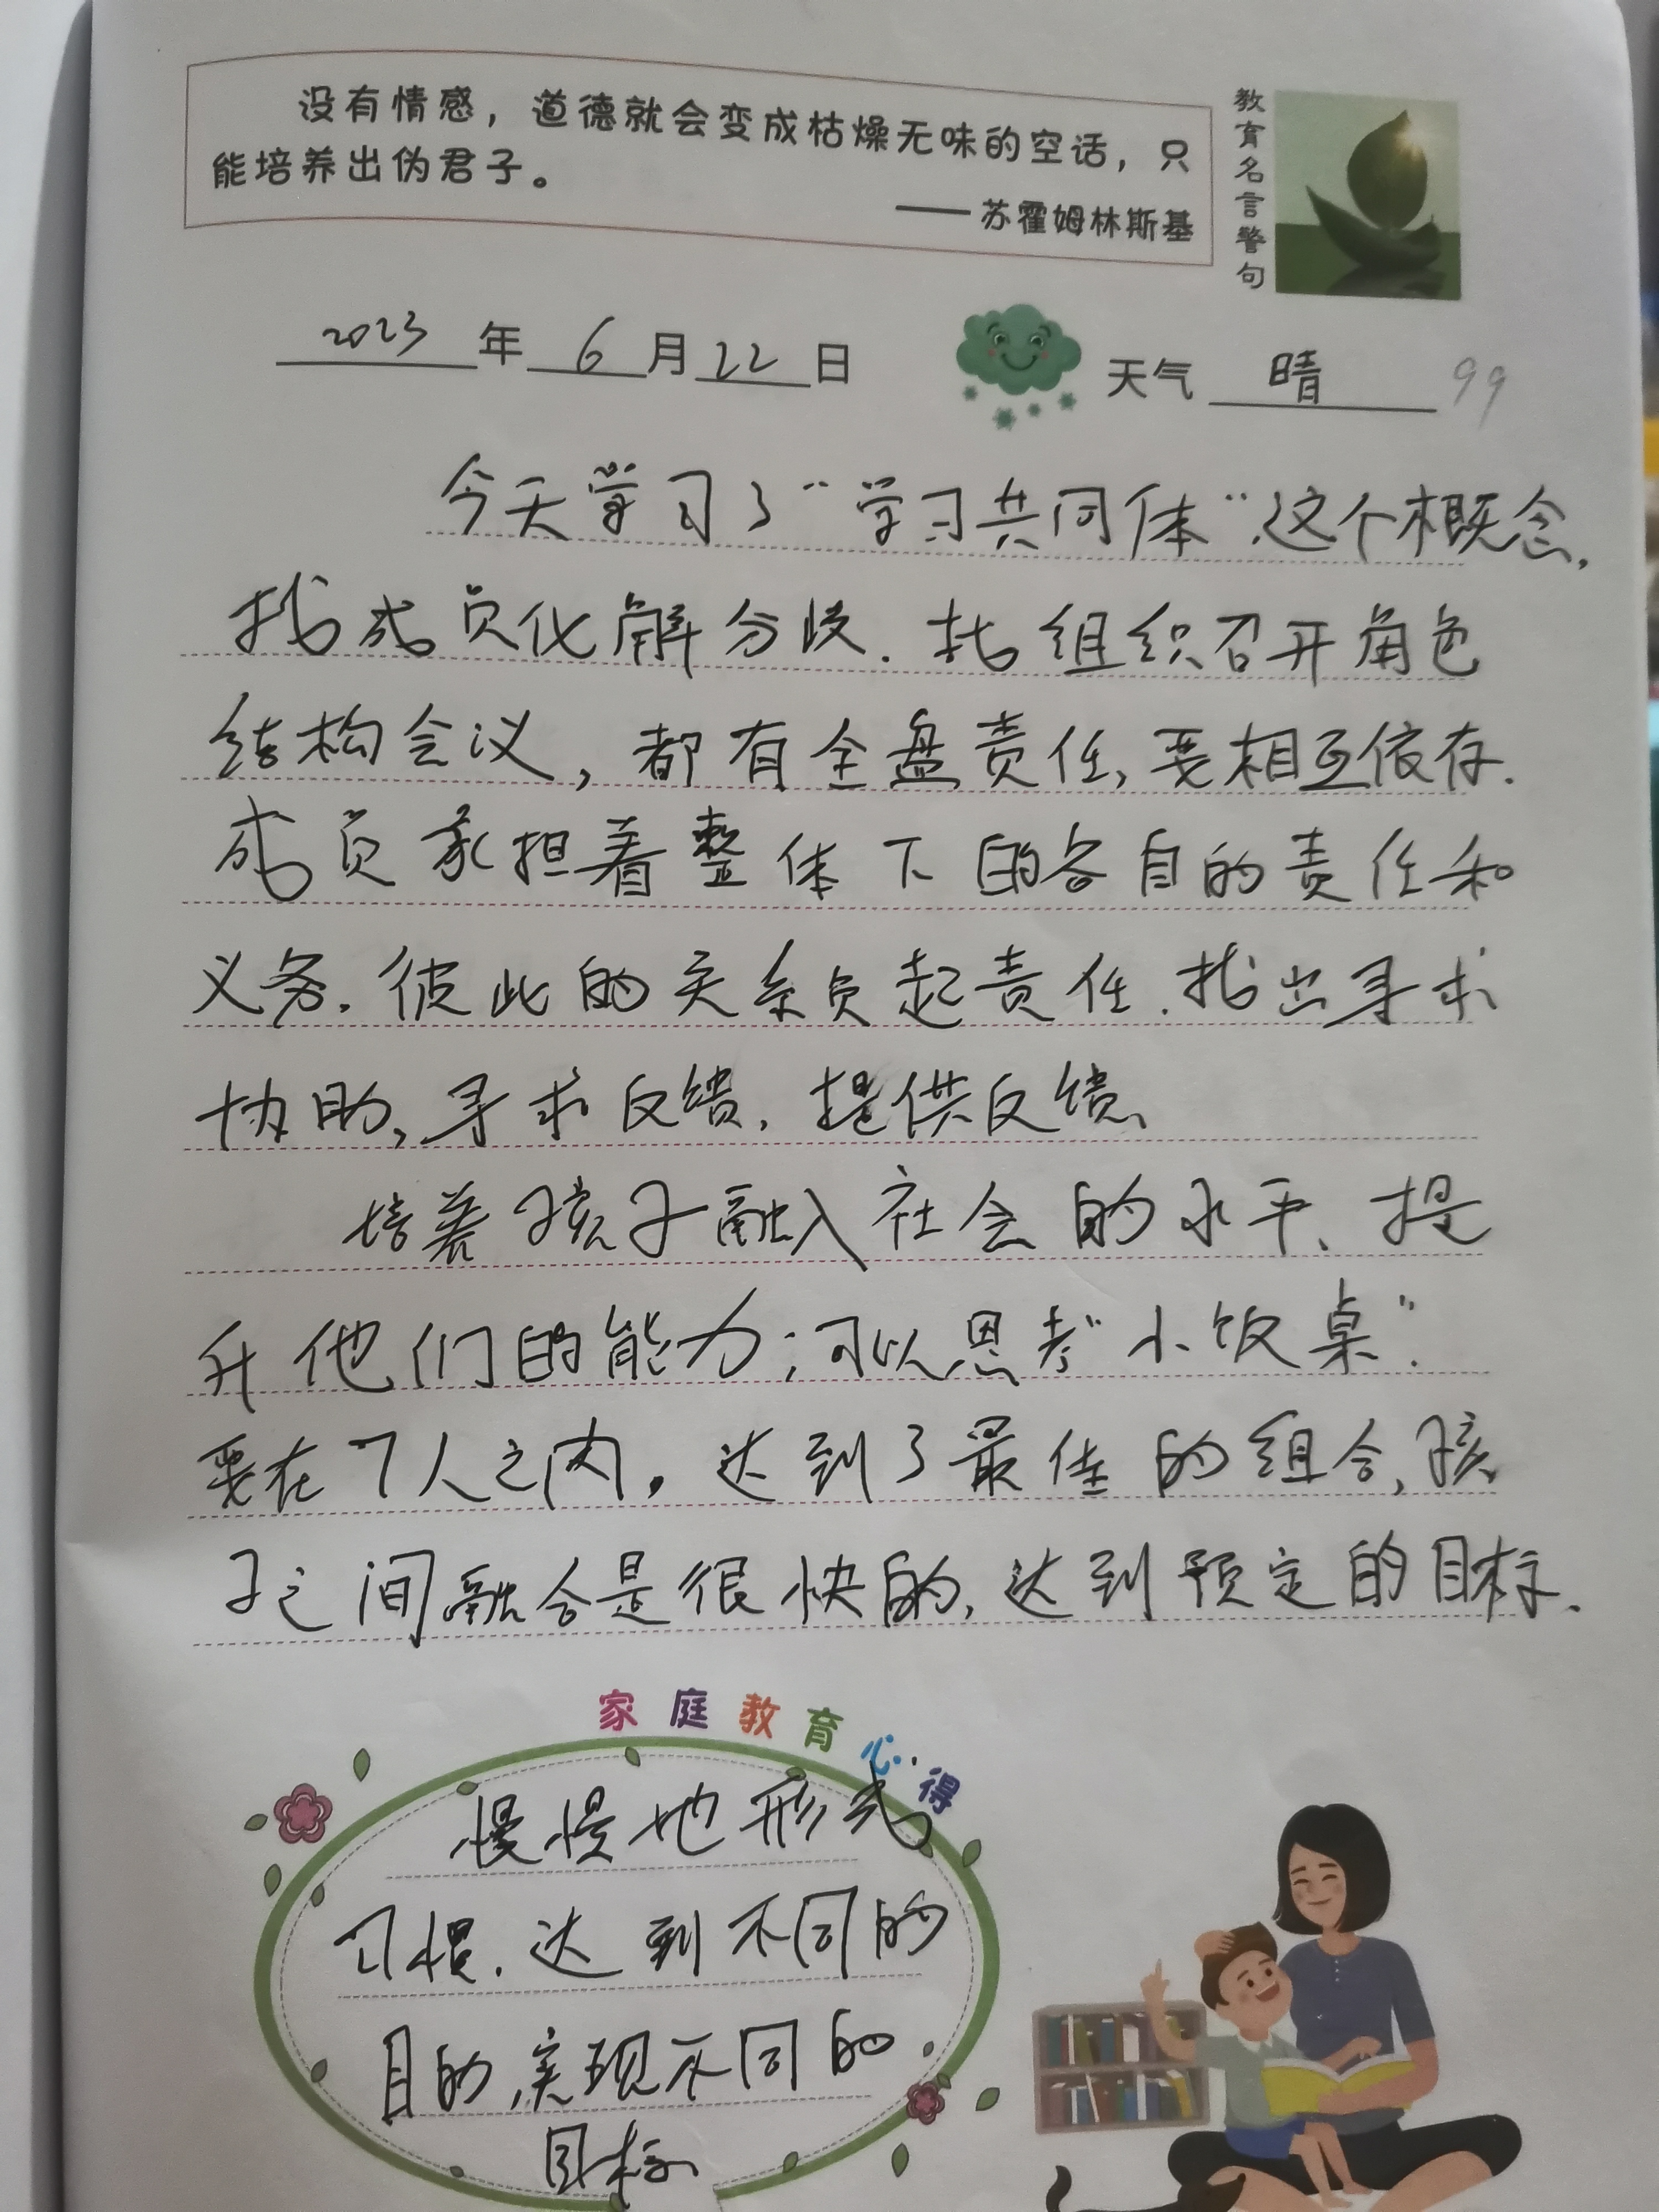 没有情感，道德就会变成枯燥无味的空话，只
能培养出伪君子。
——苏霍姆林斯基
教育名言警句
2023年6月22日
天气 晴 99
今天学习了“学习共同体”.这个概念,
找成员化解分歧.找组织召开角色
结构会议,都有全盘责任,要相互依存.
成员承担着整体下的各自的责任和
义务.彼此的关系负起责任.找出寻求
协助,寻求反馈.提供反馈、
培养孩子融入社会的水平、提
升他们的能力;可以思考“小饭桌”.
要在7人之内.达到了最佳的组合,孩
子之间融合是很快的,达到预定的目标.
家庭教育心得
慢慢地形式
习惯.达到不同的
目的,实现不同的
目标